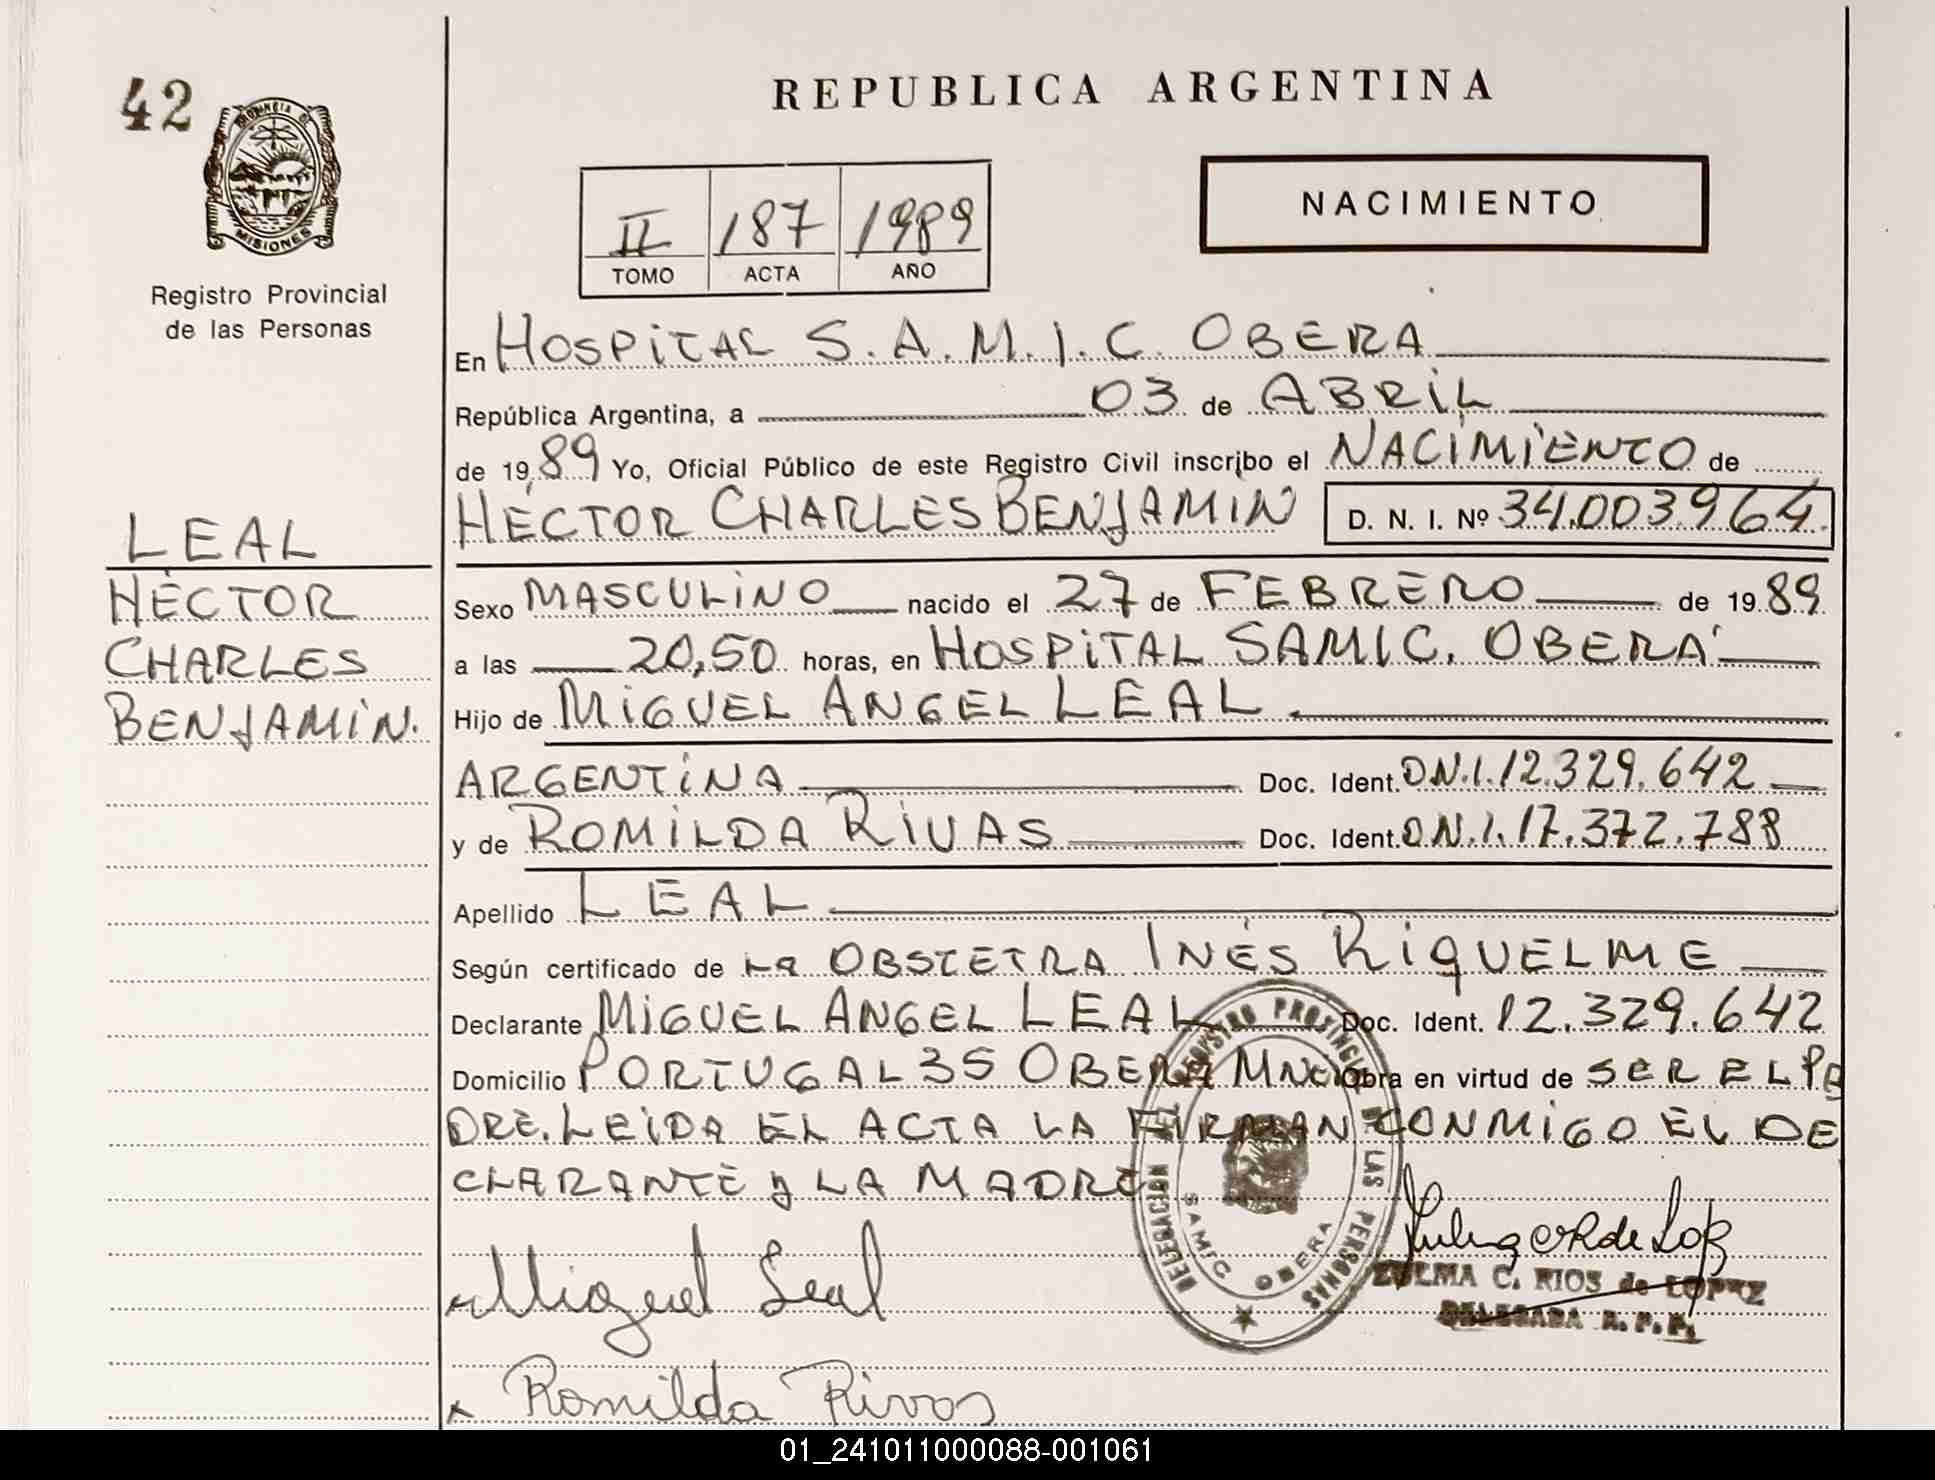 42
REPUBLICA ARGENTINA
PROVINCIA DE
MISIONES
Registro Provincial
de las Personas
II 187 1989
TOMO ACTA AÑO
NACIMIENTO
En HOSPITAL S.A.M.I.C. OBERA
República Argentina, a 03 de ABRIL
de 1989 Yo, Oficial Público de este Registro Civil inscribo el NACIMIENTO de
HÉCTOR CHARLES BENJAMIN D. N. I. Nº 34.003.964.
LEAL
HÉCTOR
CHARLES
BENJAMIN.
Sexo MASCULINO nacido el 27 de FEBRERO de 1989
a las 20,50 horas, en HOSPITAL SAMIC. OBERÁ
Hijo de MIGUEL ANGEL LEAL
ARGENTINA Doc. Ident. D.N.I. 12.329.642
y de ROMILDA RIVAS Doc. Ident. D.N.I. 17.372.788
Apellido LEAL
Según certificado de LA OBSTETRA INÉS RIQUELME
Declarante MIGUEL ANGEL LEAL Doc. Ident. 12.329.642
Domicilio PORTUGAL 35 OBERA MNES Obra en virtud de SER EL PA
DRE. LEIDA EL ACTA LA FIRMAN CONMIGO EL DE
CLARANTE y LA MADRE
DELEGACION REGISTRO PROVINCIAL DE LAS PERSONAS
SAMIC OBERA
Miguel Leal
ZULMA C. RIOS de LOPEZ
DELEGADA R. P. P.
Romilda Rivas
01_241011000088-001061